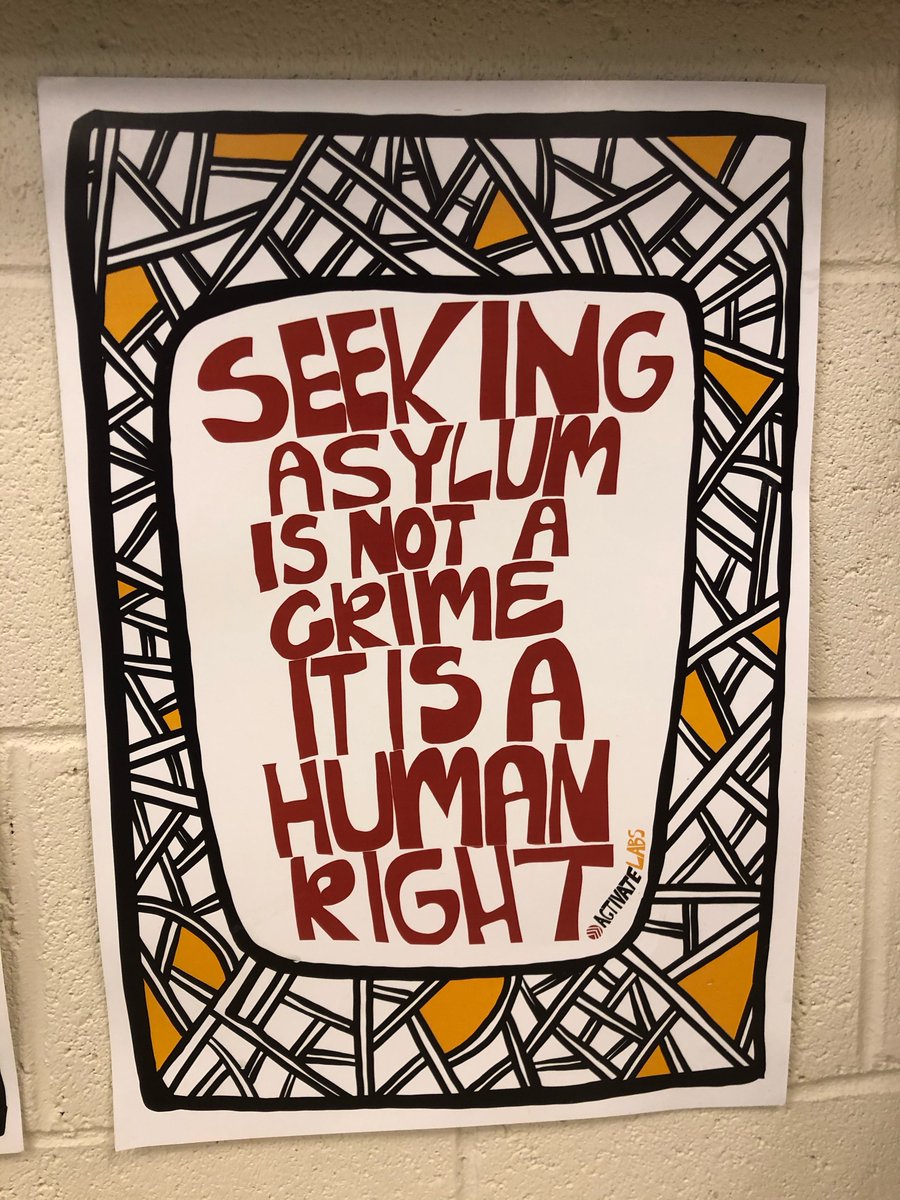 SEEKING
ASYLUM
IS NOT A
CRIME
IT IS A
HUMAN
RIGHT
ACTIVATELABS